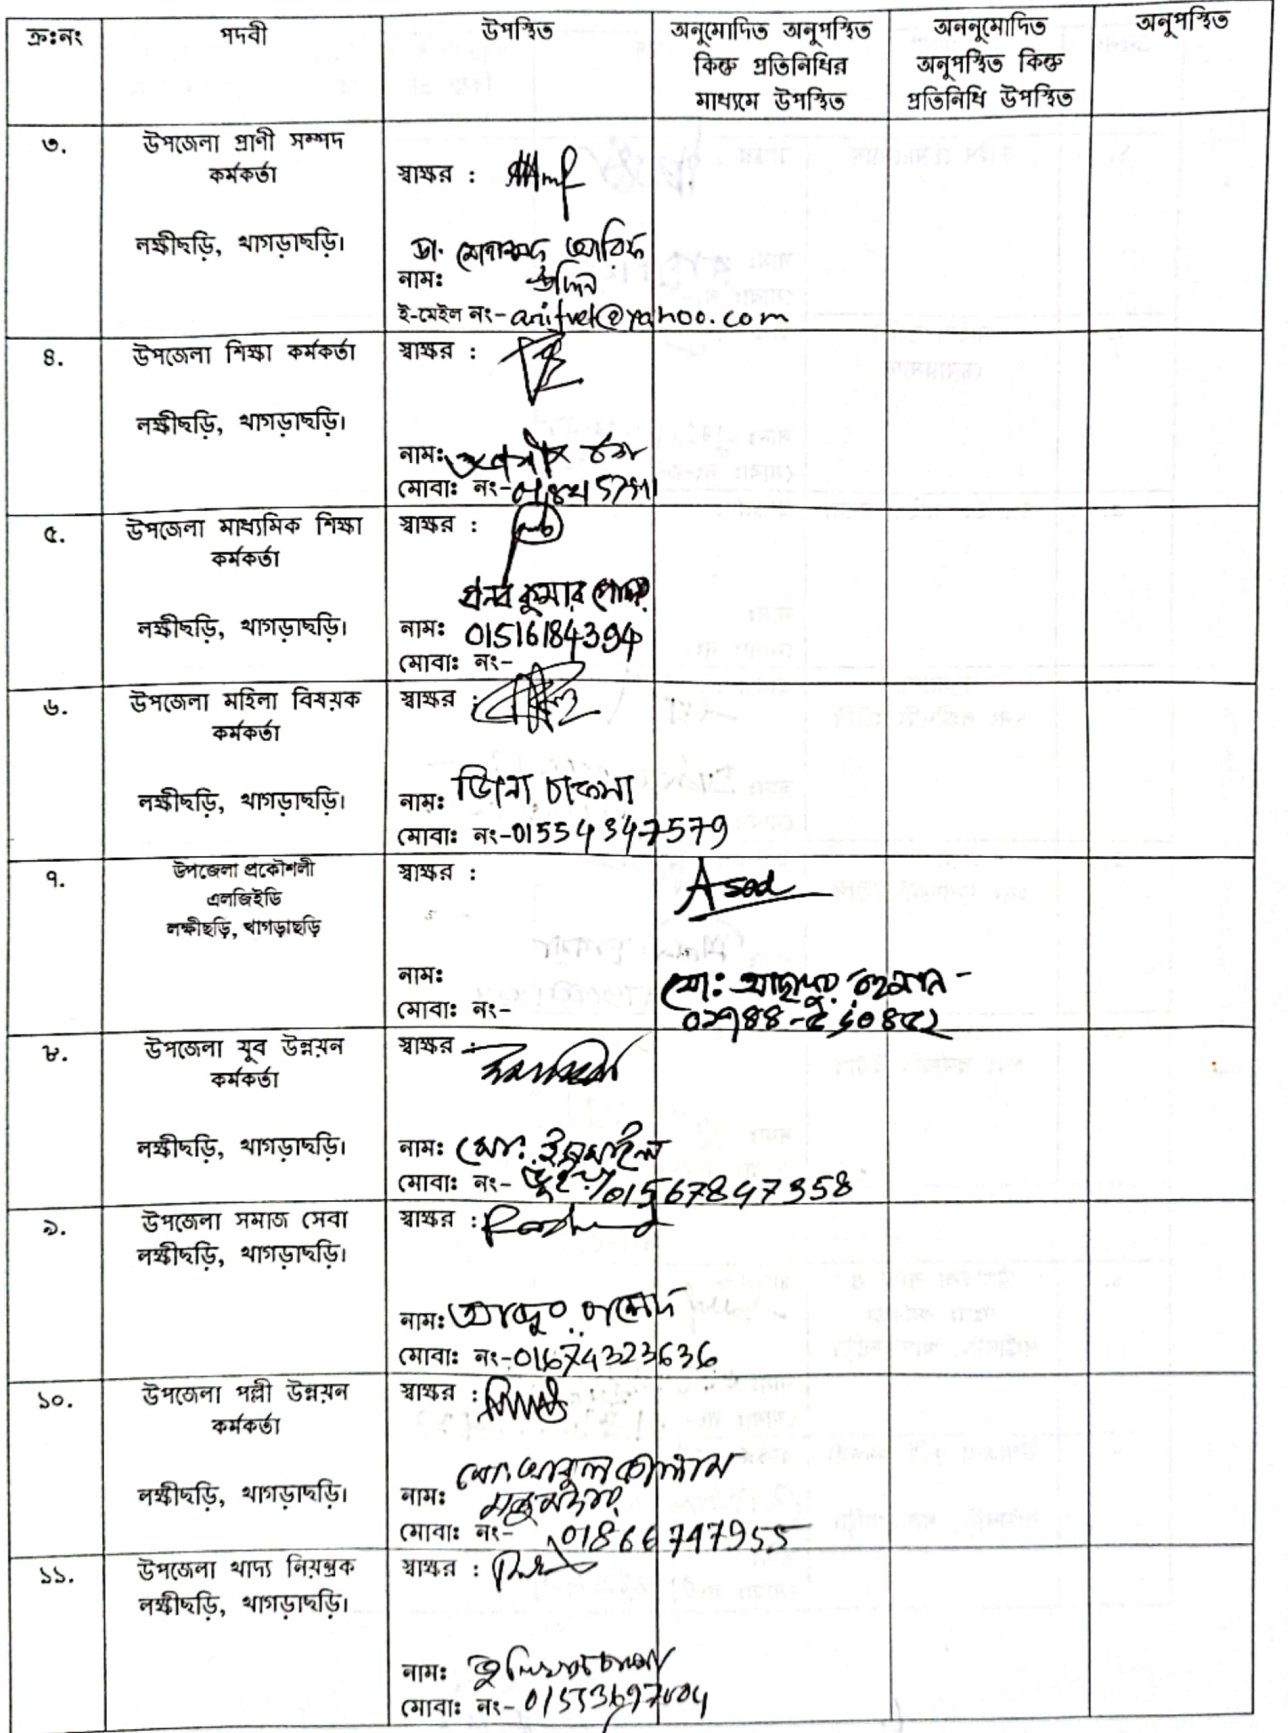 ক্রঃনং পদবী উপস্থিত অনুমোদিত অনুপস্থিত কিন্তু প্রতিনিধির মাধ্যমে উপস্থিত অননুমোদিত অনুপস্থিত কিন্তু প্রতিনিধি উপস্থিত অনুপস্থিত
৩. উপজেলা প্রাণী সম্পদ
কর্মকর্তা
লক্ষীছড়ি, খাগড়াছড়ি।
স্বাক্ষর :
ডা. মোহাম্মদ আরিফ
নামঃ উদ্দিন
ই-মেইল নং- arifvet@yahoo.com
৪. উপজেলা শিক্ষা কর্মকর্তা
লক্ষীছড়ি, খাগড়াছড়ি।
স্বাক্ষর :
নামঃ
মোবাঃ নং-
৫. উপজেলা মাধ্যমিক শিক্ষা
কর্মকর্তা
লক্ষীছড়ি, খাগড়াছড়ি।
স্বাক্ষর :
কুমার
নামঃ 01516184394
মোবাঃ নং-
৬. উপজেলা মহিলা বিষয়ক
কর্মকর্তা
লক্ষীছড়ি, খাগড়াছড়ি।
স্বাক্ষর :
নামঃ চাকমা
মোবাঃ নং-01554347579
৭. উপজেলা প্রকৌশলী
এলজিইডি
লক্ষীছড়ি, খাগড়াছড়ি
স্বাক্ষর :
Asad
নামঃ
মোঃ রহমান
মোবাঃ নং-
৮. উপজেলা যুব উন্নয়ন
কর্মকর্তা
লক্ষীছড়ি, খাগড়াছড়ি।
স্বাক্ষর :
নামঃ মো. ইসমাইল
মোবাঃ নং- 01567847358
৯. উপজেলা সমাজ সেবা
লক্ষীছড়ি, খাগড়াছড়ি।
স্বাক্ষর :
নামঃ
মোবাঃ নং-01674323636
১০. উপজেলা পল্লী উন্নয়ন
কর্মকর্তা
লক্ষীছড়ি, খাগড়াছড়ি।
স্বাক্ষর :
মো. আবুল কালাম
নামঃ মজুমদার
মোবাঃ নং- 01866747955
১১. উপজেলা খাদ্য নিয়ন্ত্রক
লক্ষীছড়ি, খাগড়াছড়ি।
স্বাক্ষর :
নামঃ
মোবাঃ নং-